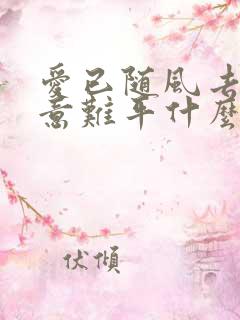 愛已随風去
意難平什麼
伏傾